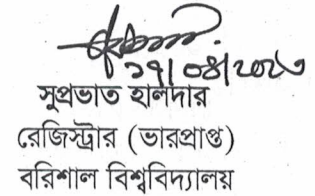 ১৭/০৪/২০২৩
সুপ্রভাত হালদার
রেজিস্ট্রার (ভারপ্রাপ্ত)
বরিশাল বিশ্ববিদ্যালয়